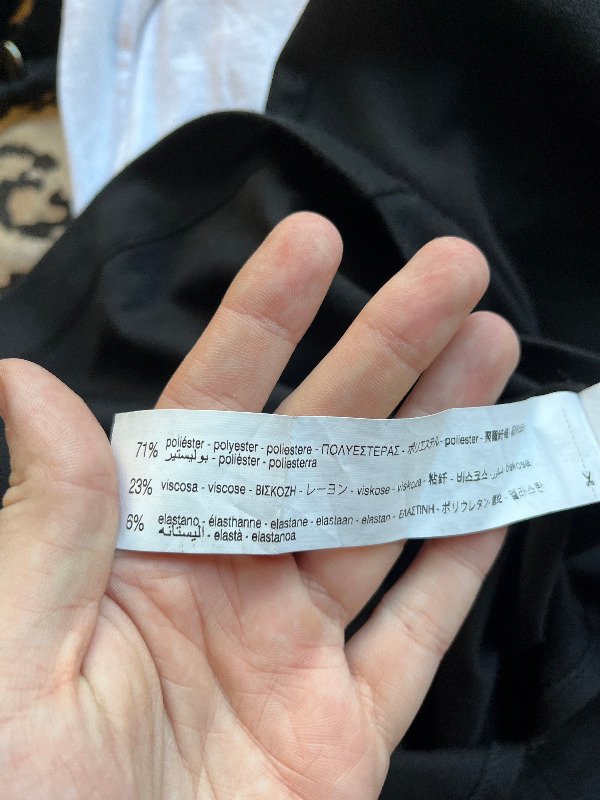 71% poliéster - polyester - poliestere - ΠΟΛΥΕΣΤΕΡΑΣ - ポリエステル - poliester - 聚酯纤维
بوليستير - polièster - poliesterra
23% viscosa - viscose - ΒΙΣΚΟΖΗ - レーヨン - viskose - viskoza - 粘纤 - 비스코스 - biskosa
6% elastano - élasthanne - elastane - elastaan - elastan - ΕΛΑΣΤΙΝΗ - ポリウレタン - 엘라스탄
اليستانه - elastà - elastanoa